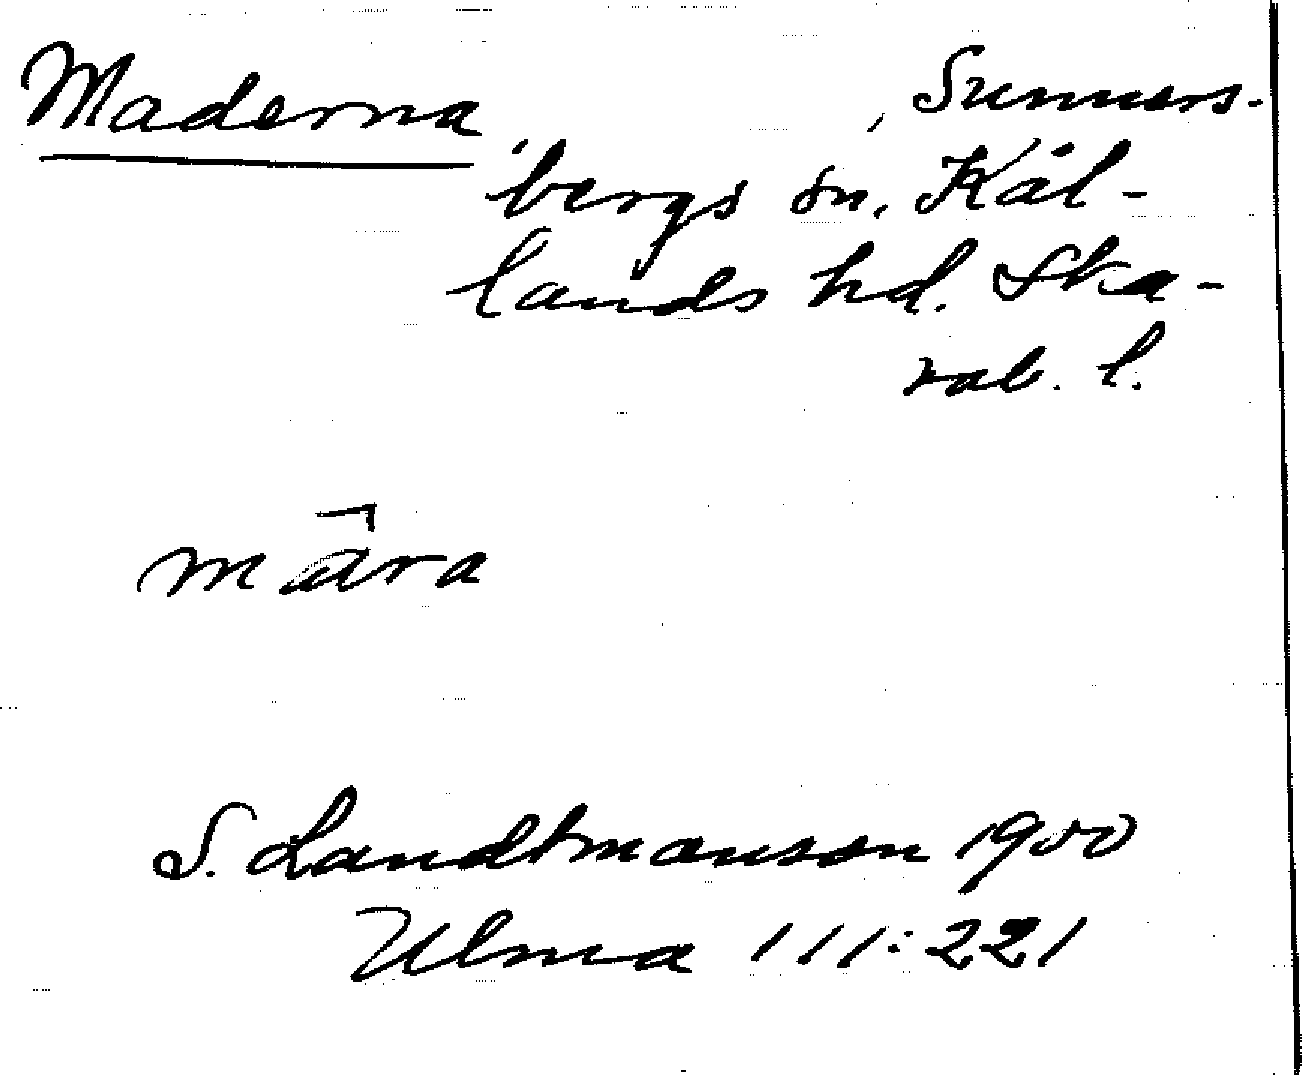 Maderna, Sunners-
bergs sn. Kål-
lands hd. Ska-
rab. l.
māra
S. Landtmanson 1900
Ulma 111:221